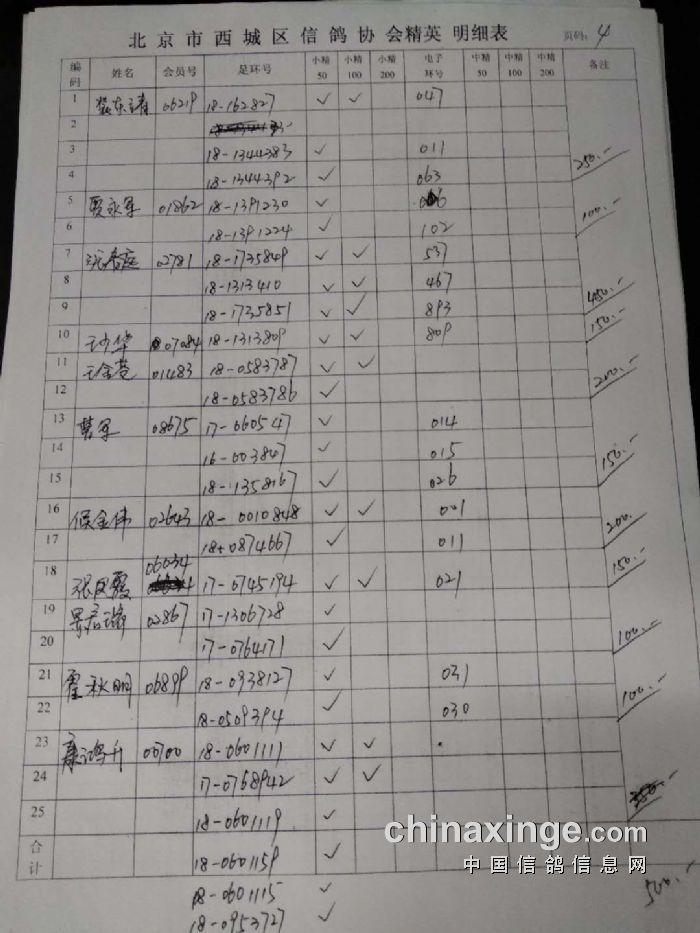 北京市西城区信鸽协会精英 明细表 页码: 4
编码 姓名 会员号 足环号 小精50 小精100 小精200 电子环号 中精50 中精100 中精200 备注
1 06219 18-162827 ✓ ✓ 047
2
3 18-1344383 ✓ 011
4 18-1344392 ✓ 063 250.-
5 贾永军 01862 18-1391230 ✓
6 18-1391224 ✓ 102 100.-
7 02781 18-1735849 ✓ ✓ 537
8 18-1313410 ✓ ✓ 467
9 18-1735851 ✓ ✓ 893 450.-
10 07084 18-1313809 ✓ ✓ 809 150.-
11 01483 18-0583787 ✓ ✓
12 18-0583786 ✓ 200.-
13 曹军 08675 17-060547 ✓ 014
14 16-003847 ✓ 015
15 ✓ 026 150.-
16 侯金伟 02643 18-0010848 ✓ ✓ 001
17 18-0874667 ✓ 011 200.
18 张凤霞 06034 17-0745194 ✓ ✓ 021 150.-
19 02867 17-1306728 ✓
20 17-0764171 ✓ 100.-
21 霍秋明 06899 18-0938127 ✓ 031
22 18-0509394 ✓ 030 100.-
23 康鸿升 00700 18-0601111 ✓ ✓
24 17-0768942 ✓ ✓
25 18-0601119 ✓
合计 18-0601159 ✓
18-0601115 ✓ 500.-
18-0953727 ✓
chinaxinge.com
中国信鸽信息网